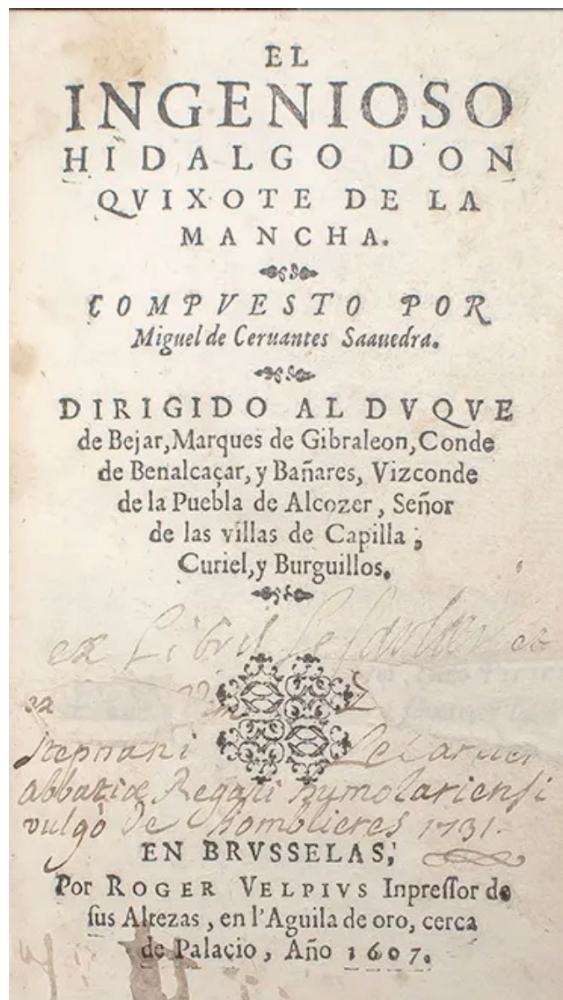 EL
INGENIOSO
HIDALGO DON
QVIXOTE DE LA
MANCHA.
COMPVESTO POR
Miguel de Ceruantes Saauedra.
DIRIGIDO AL DVQVE
de Bejar, Marques de Gibraleon, Conde
de Benalcaçar, y Bañares, Vizconde
de la Puebla de Alcozer, Señor
de las villas de Capilla,
Curiel, y Burguillos.
ex Libris
abbatiæ humolariensi
vulgò De homblieres 1731.
EN BRVSSELAS,
Por ROGER VELPIVS Inpreſſor de
ſus Altezas, en l'Aguila de oro, cerca
de Palacio, Año 1607.